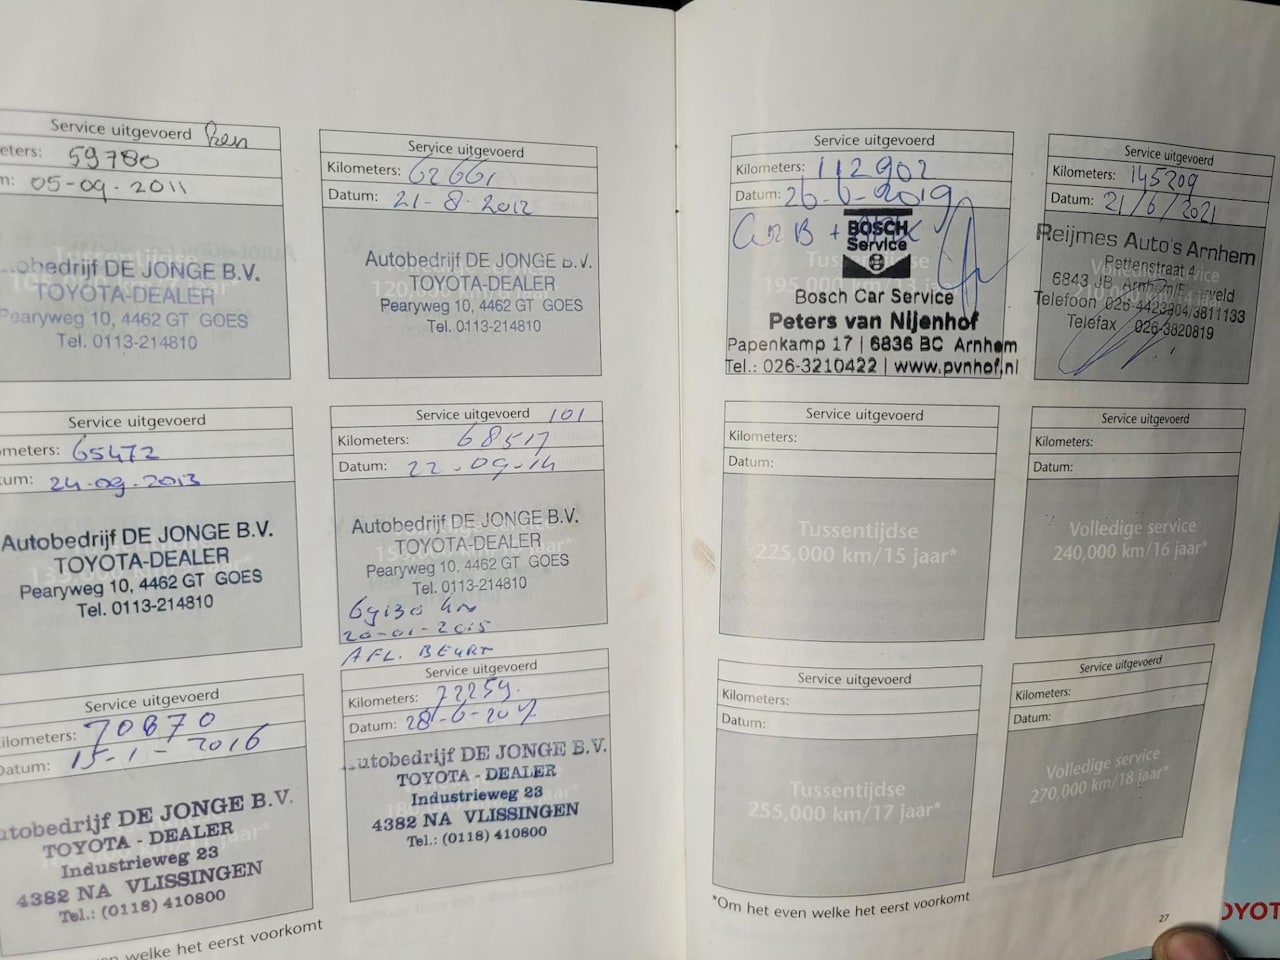 Service uitgevoerd
eters: 59780
m: 05-09-2011
Autobedrijf DE JONGE B.V.
TOYOTA-DEALER
Pearyweg 10, 4462 GT GOES
Tel. 0113-214810
Service uitgevoerd
Kilometers: 62661
Datum: 21-8-2012
Autobedrijf DE JONGE B.V.
TOYOTA-DEALER
Pearyweg 10, 4462 GT GOES
Tel. 0113-214810
Service uitgevoerd
meters: 65472
tum: 24-09-2013
Autobedrijf DE JONGE B.V.
TOYOTA-DEALER
Pearyweg 10, 4462 GT GOES
Tel. 0113-214810
Service uitgevoerd 101
Kilometers: 68517
Datum: 22-09-14
Autobedrijf DE JONGE B.V.
TOYOTA-DEALER
Pearyweg 10, 4462 GT GOES
Tel. 0113-214810
20-01-2015
AFL. BEURT
Service uitgevoerd
ilometers: 70870
Datum: 15-1-2016
utobedrijf DE JONGE B.V.
TOYOTA - DEALER
Industrieweg 23
4382 NA VLISSINGEN
Tel.: (0118) 410800
Service uitgevoerd
Kilometers: 72259.
Datum: 28-6-2017
utobedrijf DE JONGE B.V.
TOYOTA - DEALER
Industrieweg 23
4382 NA VLISSINGEN
Tel.: (0118) 410800
en welke het eerst voorkomt
Service uitgevoerd
Kilometers: 112902
Datum: 26-6-2019
BOSCH
Service
Tussentijdse
195,000 km/13 jaar*
Bosch Car Service
Peters van Nijenhof
Papenkamp 17 | 6836 BC Arnhem
Tel.: 026-3210422 | www.pvnhof.nl
Service uitgevoerd
Kilometers: 145209
Datum: 21/6/2021
Reijmes Auto's Arnhem
Pettenstraat 4
Volledige service
6843 JB Arnhem/E veld
Telefoon 026-4423304/3811133
Telefax 026-3820819
Service uitgevoerd
Kilometers:
Datum:
Tussentijdse
225,000 km/15 jaar*
Service uitgevoerd
Kilometers:
Datum:
Volledige service
240,000 km/16 jaar*
Service uitgevoerd
Kilometers:
Datum:
Tussentijdse
255,000 km/17 jaar*
Service uitgevoerd
Kilometers:
Datum:
Volledige service
270,000 km/18 jaar*
*Om het even welke het eerst voorkomt
27
OYOT